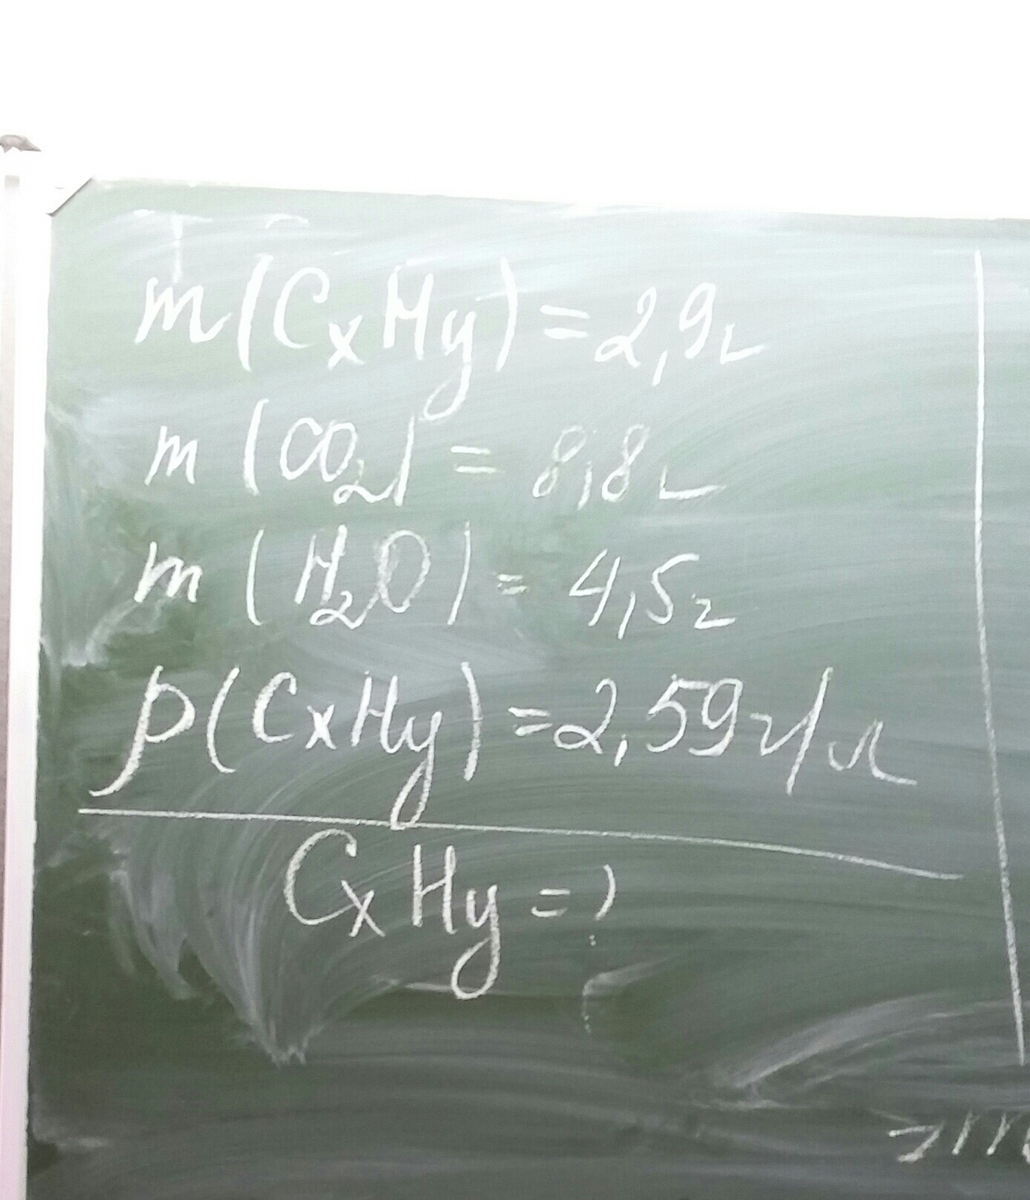 m(CxHy)=2,9г
m(CO₂)=8,8г
m(H₂O)=4,5г
ρ(CxHy)=2,59г/л
CxHy=?